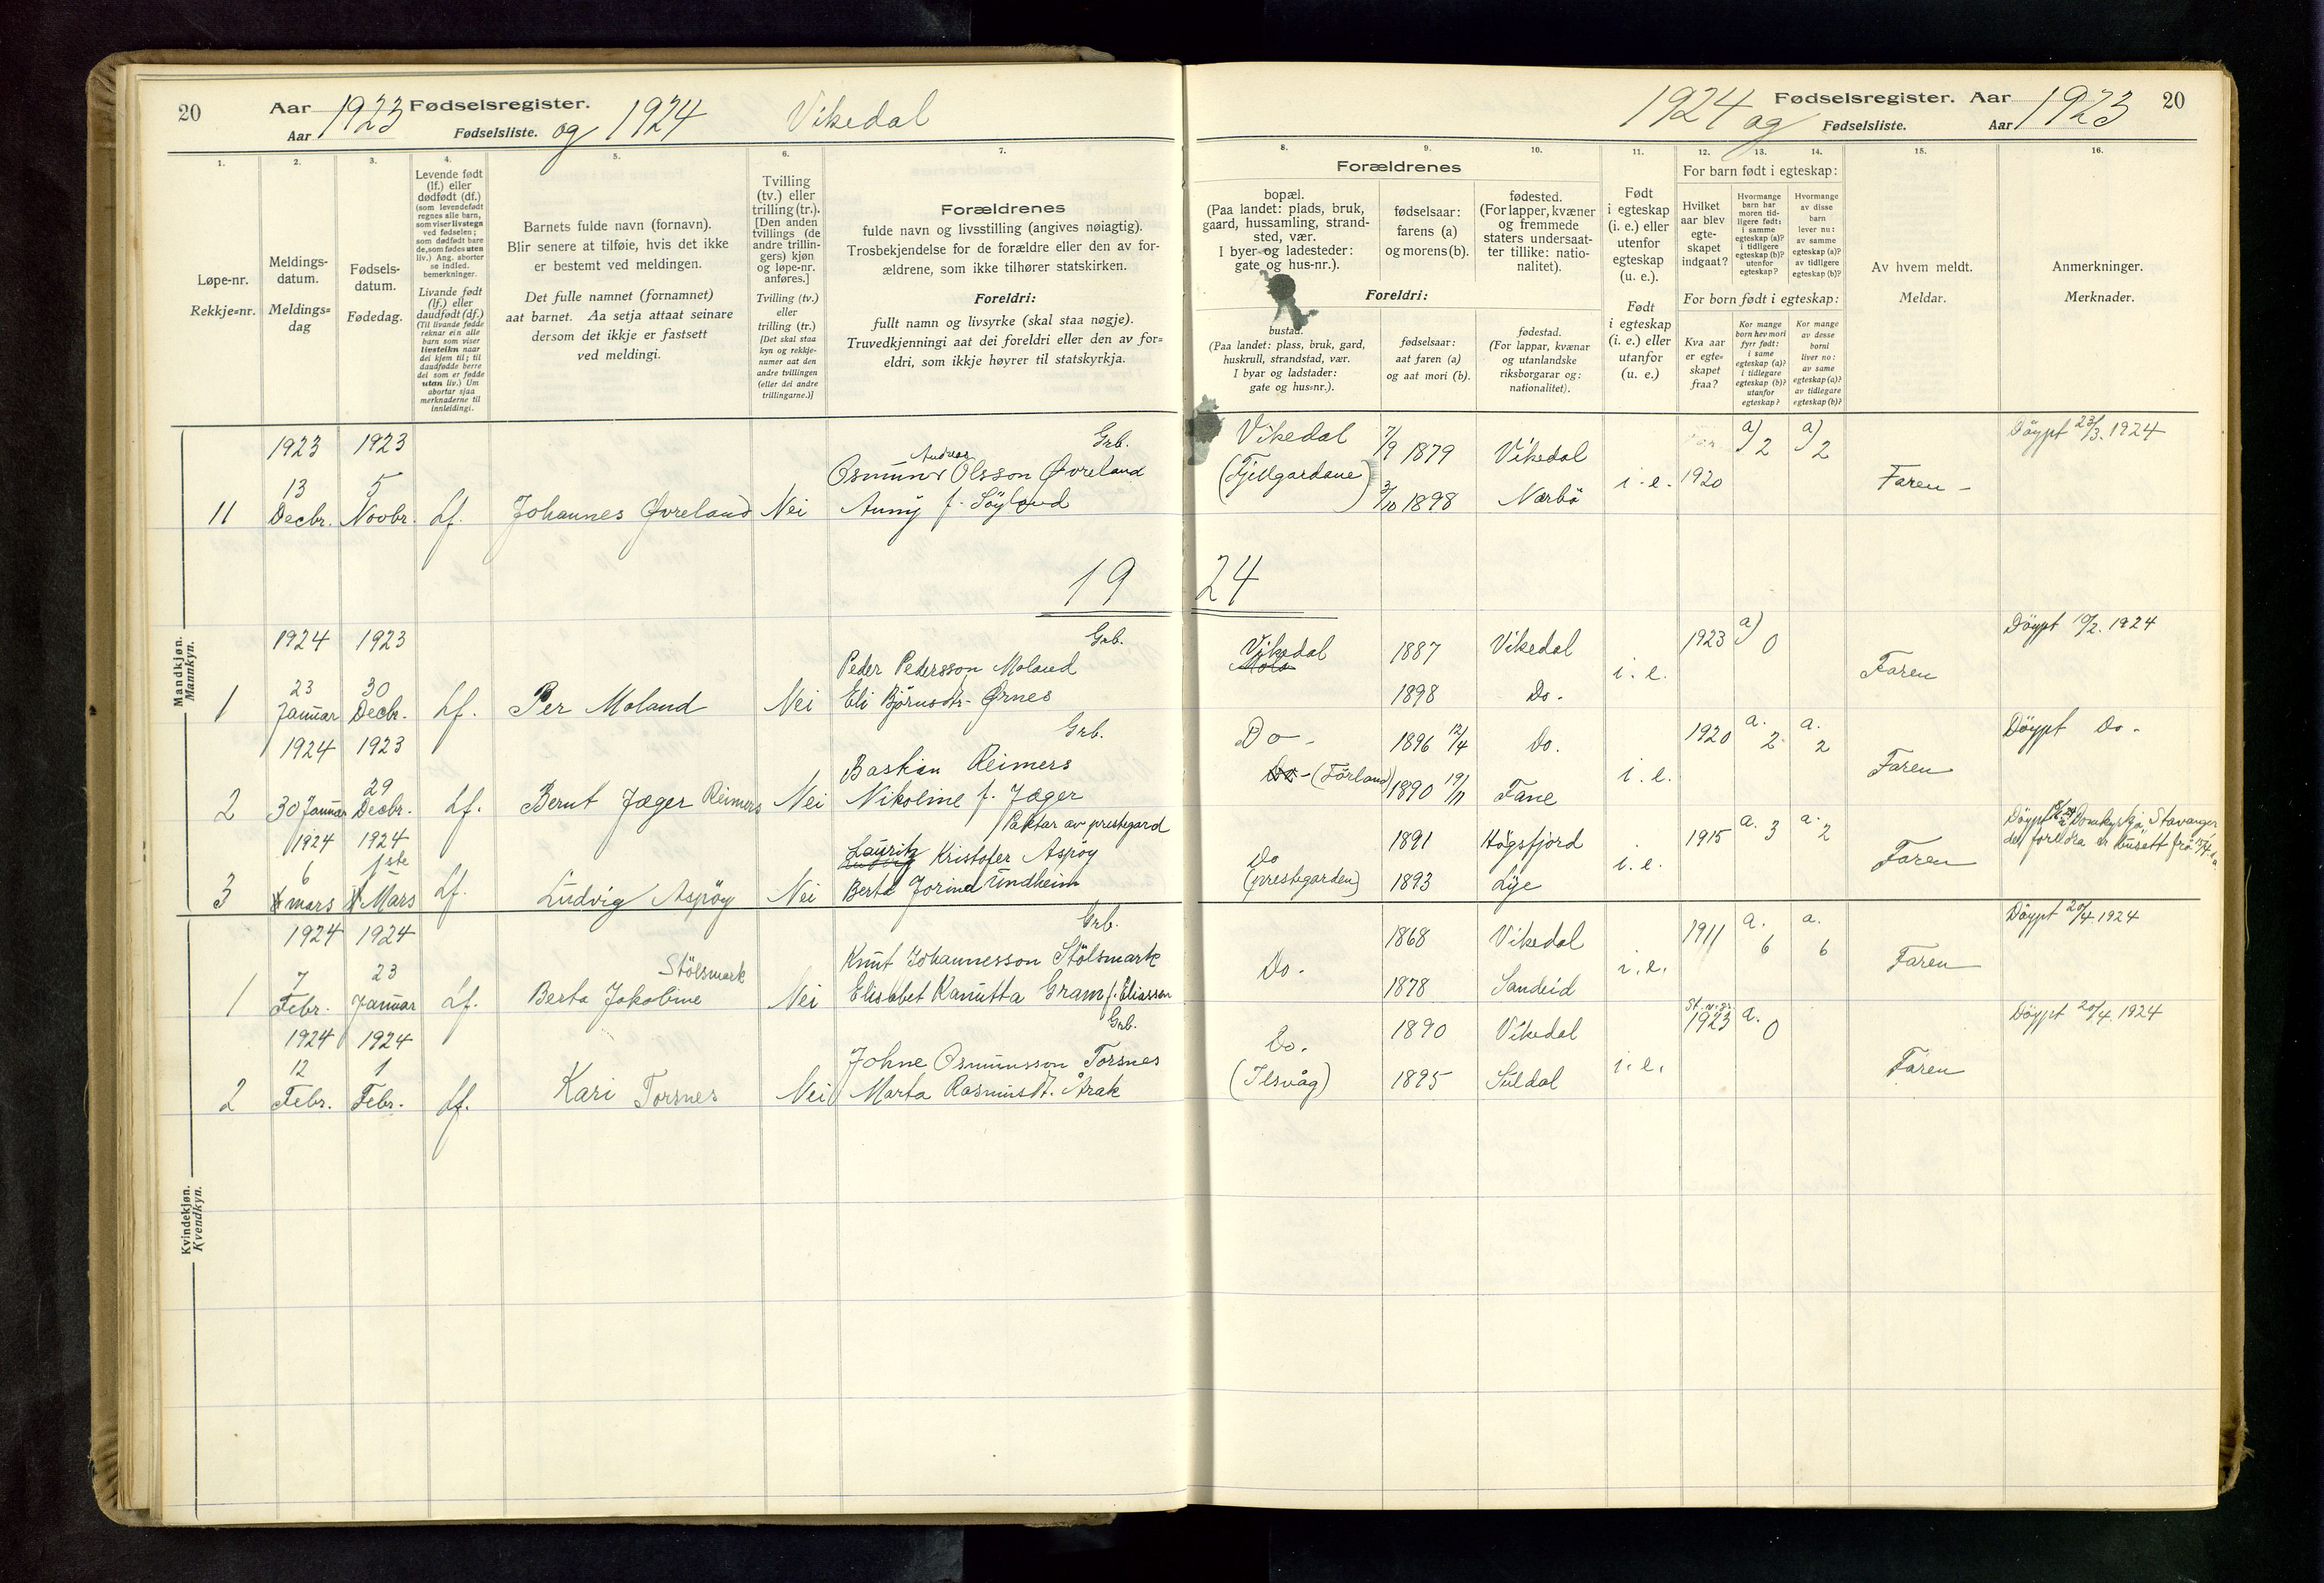 20 Aar 1923 Fødselsregister. 1924 Vikedal
Aar Fødselsliste. og
1924 Fødselsregister. Aar 1923 20
og Fødselsliste. Aar
1. 2. 3. 4. 5. 6. 7.
8. 9. 10. 11. 12. 13. 14. 15. 16.
Løpe-nr.
Rekkje=nr.
Meldings-
datum.
Meldings=
dag
Fødsels-
datum.
Fødedag.
Levende født
(lf.) eller
dødfødt (df.)
(som levendefødt
regnes alle barn,
som viser livstegn
ved fødselen;
som dødfødt bare
de, som fødes uten
liv.) Ang. aborter
se indled.
bemerkninger.
Livande født
(lf.) eller
daudfødt (df.)
(Til livande fødde
reknar ein alle
barn som viser
livsteikn naar
dei kjem til; til
daudfødde berre
dei som er fødde
utan liv.) Um
abortar sjaa
merknaderne til
innleidingi.
Barnets fulde navn (fornavn).
Blir senere at tilføie, hvis det ikke
er bestemt ved meldingen.
Det fulle namnet (fornamnet)
aat barnet. Aa setja attaat seinare
dersom det ikkje er fastsett
ved meldingi.
Tvilling
(tv.) eller
trilling (tr.).
[Den anden
tvillings (de
andre trillin-
gers) kjøn
og løpe-nr.
anføres.]
Tvilling (tv.)
eller
trilling (tr.)
[Det skal staa
kyn og rekkje-
numer aat den
andre tvillingen
(eller dei andre
trillingarne.)]
Forældrenes
fulde navn og livsstilling (angives nøiagtig).
Trosbekjendelse for de forældre eller den av for-
ældrene, som ikke tilhører statskirken.
Foreldri:
fullt namn og livsyrke (skal staa nøgje).
Truvedkjenningi aat dei foreldri eller den av for=
eldri, som ikkje høyrer til statskyrkja.
Forældrenes
bopæl.
(Paa landet: plads, bruk,
gaard, hussamling, strand-
sted, vær.
I byer og ladesteder:
gate og hus-nr.).
fødselsaar:
farens (a)
og morens (b).
fødested.
(For lapper, kvæner
og fremmede
staters undersaat-
ter tillike: natio-
nalitet).
Foreldri:
bustad.
(Paa landet: plass, bruk, gard,
huskrull, strandstad, vær.
I byar og ladstader:
gate og hus=nr.).
fødselsaar:
aat faren (a)
og aat mori (b).
fødestad.
(For lappar, kvænar
og utanlandske
riksborgarar og:
nationalitet).
Født
i egteskap
(i. e.) eller
utenfor
egteskap
(u. e.).
Født
i egteskap
(i. e.) eller
utanfor
(u. e.)
For barn født i egteskap:
Hvilket
aar blev
egte-
skapet
indgaat?
Hvormange
barn har
moren tid-
ligere født:
i samme
egteskap (a)?
i tidligere
egteskap (b)?
utenfor
egteskap?
Hvormange
av disse
barn
lever nu:
av samme
egteskap (a)?
av tidligere
egteskap (b)?
For born født i egteskap:
Kva aar
er egte=
skapet
fraa?
Kor mange
born hev mori
fyrr født:
i same
egteskap (a)?
i tidlegare
egteskap (b)?
utanfor
egteskap?
Kor mange
av desse
borni
liver no:
av same
egteskap (a)?
av tidlegare
egteskap (b)?
Av hvem meldt.
Meldar.
Anmerkninger.
Merknader.
Mandkjøn.
Mannkyn.
1923 1923 Grb. Vikedal 7/9 1879 Vikedal a) 2 a) 2 Döypt 23/3. 1924
Andreas
Osmund Olsson Øvreland
13 5
11 Decbr. Novbr. Lf. Johannes Øvreland Nei Anny f. Söyland (Fjellgardane) 3/10 1898 Nærbö i. e. 1920 Faren
19 24
1924 1923 Grb. Vikedal 1887 Vikedal 1923 a) 0 Döypt 10/2. 1924
Peder Pedersson Moland
23 30
1 Januar Decbr. Lf. Per Moland Nei Eli Björnsdtr. Ørnes 1898 Do. i. e. Faren
1924 1923 Grb. Do. 1896 12/4 Do. 1920 a. 2 a. 2 Döypt Do.
Bastian Reimers
29
2 30 Januar Decbr. Lf. Bernt Jæger Reimers Nei Nikoline f. Jæger Do. (Förland) 1890 19/11 Fane i. e. Faren
Paktar av prestegard
1924 1924 Lauritz Kristofer Aspøy 1891 Högsfjord 1915 a. 3 a. 2 Döypt Domkyrkja, Stavanger
6 1ste Do
3 mars Mars Lf. Ludvig Aspøy Nei Berta Jorina Undheim (prestegarden) 1893 Lye i. e. Faren
Kvindekjøn.
Kvendkyn.
1924 1924 Grb. 1868 Vikedal 1911 a. 6 a. 6 Döypt 20/4. 1924
7 23 Stölsmark Knut Johannesson Stölsmark Do.
1 Febr. Januar Lf. Berta Jakobine Nei Elisabet Kanutta Gram f. Eliassen 1878 Sandeid i. e. Faren
1924 1924 Grb. Do. 1890 Vikedal 1923 a. 0 Döypt 20/4. 1924
12 1 Johne Osmundsson Torsnes
2 Febr. Febr. Lf. Kari Torsnes Nei Marta Rasmusdt. Årak (Ilsvåg) 1895 Suldal i. e. Faren